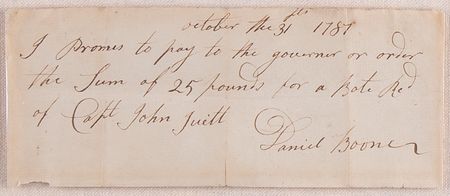 october the 31sts 1787
I Promes to pay to the governer or order
the Sum of 25 pounds for a Bote Red
of Capt John Juitt
Daniel Boone